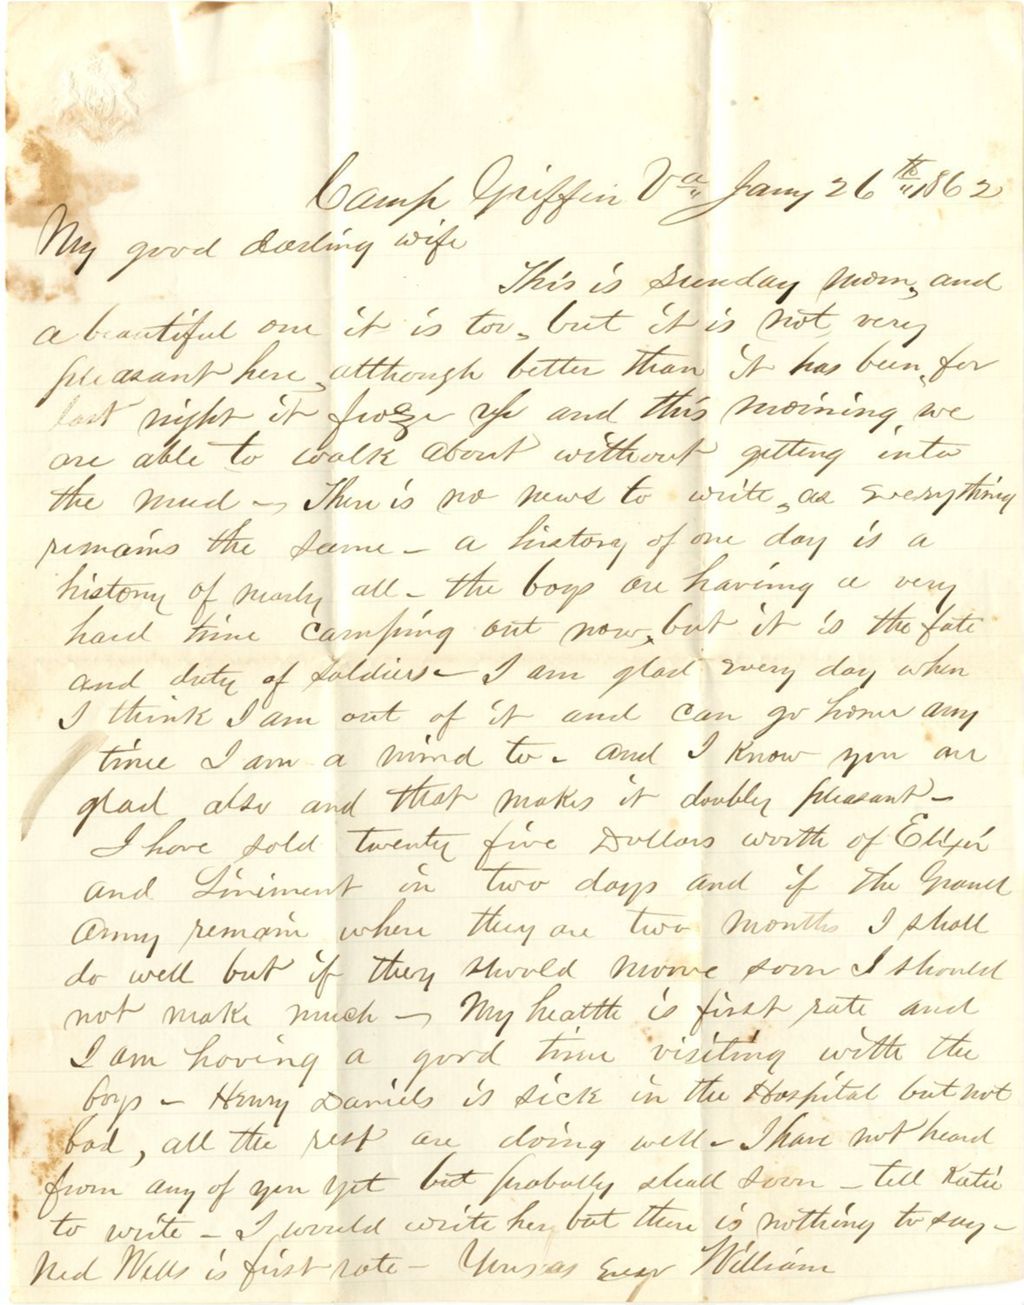 Camp Griffin Va Jany 26th 1862
My good darling wife
This is Sunday morn, and
a beautiful one it is too, but it is not very
pleasant here, although better than it has been, for
last night it froze up and this morning we
are able to walk about without getting into
the mud – There is no news to write, as everything
remains the same – a history of one day is a
history of nearly all – the boys are having a very
hard time camping out now, but it is the fate
and duty of soldiers – I am glad every day when
I think I am out of it and can go home any
time I am a mind to – and I know you are
glad also and that makes it doubly pleasant –
I have sold twenty five Dollars worth of Elixir
and Liniment in two days and if the Grand
Army remain where they are two months I shall
do well but if they should moove soon I should
not make much – My health is first rate and
I am having a good time visiting with the
boys – Henry Daniels is sick in the Hospital but not
bad, all the rest are doing well – I have not heard
from any of you yet but probably shall soon – tell Katie
to write – I would write her, but there is nothing to say –
Ned Wells is first rate – Yours as ever William